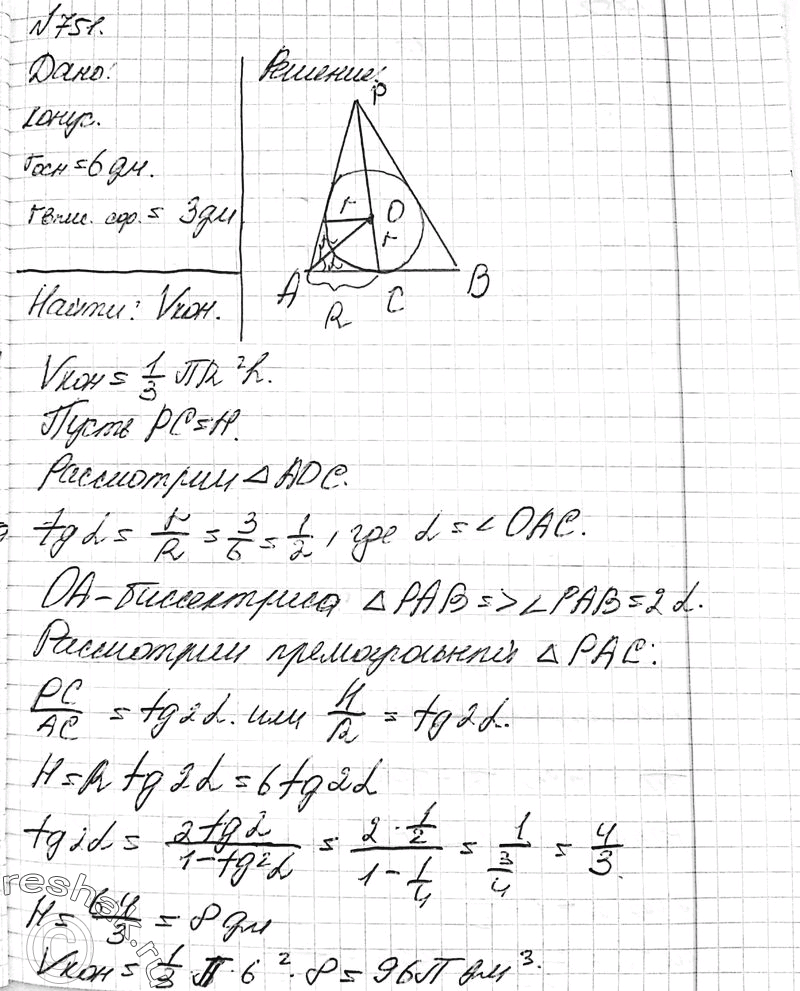 №751.
Дано:
Конус.
rосн = 6 дм.
rвпис. сф. = 3 дм
Найти: Vкон.
Решение:
P
r
O
r
α
A
R
C
B
Vкон = 1/3 πR²h.
Пусть PC = H.
Рассмотрим △AOC.
tg α = r/R = 3/6 = 1/2, где α = ∠OAC.
OA – биссектриса △PAB => ∠PAB = 2α.
Рассмотрим прямоугольный △PAC:
PC/AC = tg 2α. или H/R = tg 2α.
H = R tg 2α = 6 tg 2α
tg 2α = 2 tg α / (1 – tg² α) = (2 · 1/2) / (1 – 1/4) = 1 / (3/4) = 4/3.
H = 6·4/3 = 8 дм
Vкон = 1/3 · π · 6² · 8 = 96π дм³.
reshak.ru
©